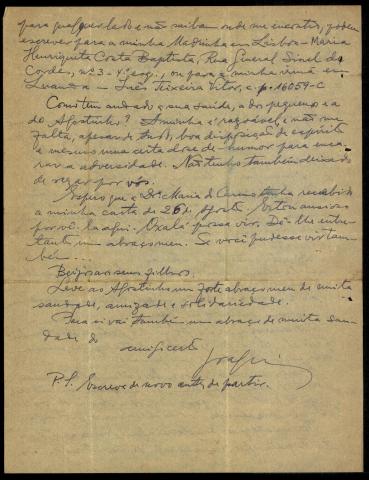 para qualquer lado e não saibam onde me encontro, podem
escrever para a minha Madrinha em Lisboa - Maria
Henriqueta Costa Baptista, Rua General Sinel de
Cordes, nº 3 - 4º esq., ou para a minha irmã em
Luanda - Inês Teixeira Vitor, c.p. 16059-C
Como tem andado a sua saúde, a dos pequenos e a
do Agostinho? A minha é razoável, e não me
falta, apesar de tudo, boa disposição de espírito
e mesmo uma certa dose de humor para enca-
rar a adversidade. Não tenho também deixado
de rezar por vós.
Espero que a Drª Maria do Carmo tenha recebido
a minha carta de 26 de Agosto. Estou ansioso
por vê-la aqui. Oxalá possa vir. Dê-lhe entre-
tanto um abraço meu. Se você pudesse vir tam-
bém...
Beijos aos seus filhos.
Leve ao Agostinho um forte abraço meu de muita
saudade, amizade e solidariedade.
Para si vai também um abraço de muita sau-
dade do
amigo certo
Joaquim
P.S. Escreva de novo antes de partir.